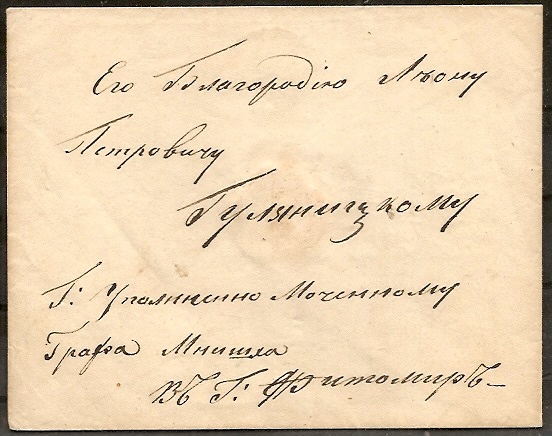 Его Благородію Льву
Петровичу
Гуляницкому
Г: Уполнисенно Моченному
Графа Мнишка
Въ Г: Житомиръ